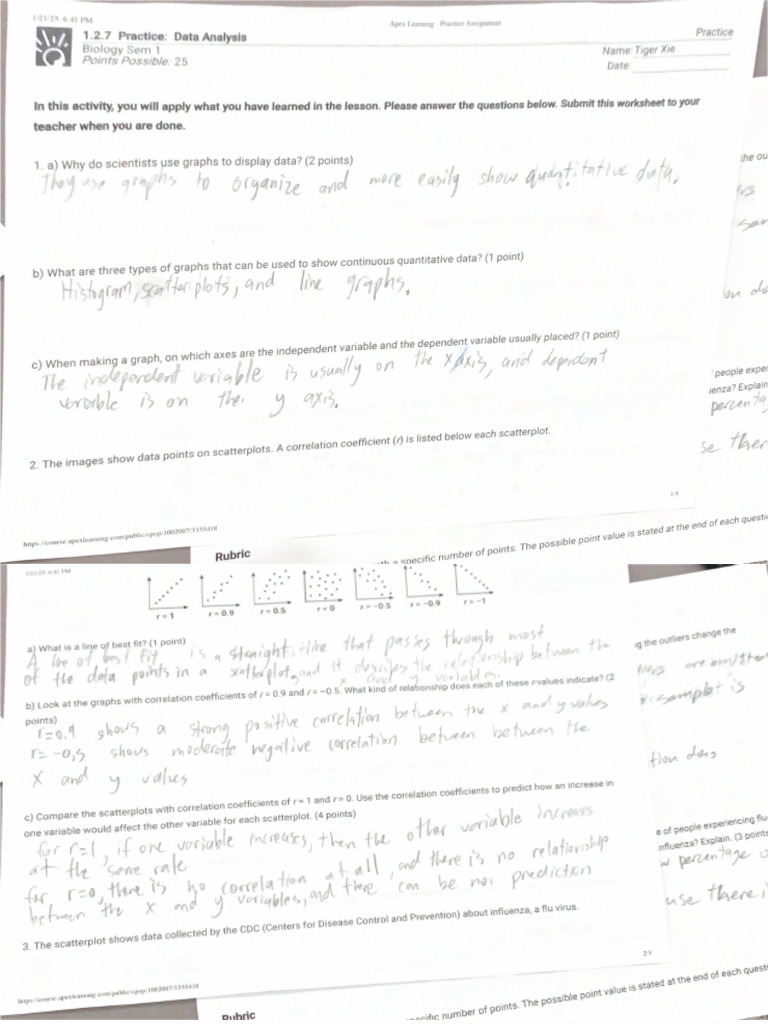 1/21/25, 6:41 PM
Apex Learning - Practice Assignment
1.2.7 Practice: Data Analysis
Practice
Biology Sem 1
Points Possible: 25
Name: Tiger Xie
Date:
In this activity, you will apply what you have learned in the lesson. Please answer the questions below. Submit this worksheet to your
teacher when you are done.
1. a) Why do scientists use graphs to display data? (2 points)
They use graphs to organize and more easily show quantitative data.
b) What are three types of graphs that can be used to show continuous quantitative data? (1 point)
Histogram, scatterplots, and line graphs.
c) When making a graph, on which axes are the independent variable and the dependent variable usually placed? (1 point)
The independent variable is usually on the x axis, and dependant
variable is on the y axis.
2. The images show data points on scatterplots. A correlation coefficient (r) is listed below each scatterplot.
1/5
https://course.apexlearning.com/public/cpop/1002007/3355418
the ou
on do
people exper
ienza? Explain
percenta
se ther
Rubric
specific number of points. The possible point value is stated at the end of each questi
1/21/25, 6:41 PM
r = 1 r = 0.9 r = 0.5 r = 0 r = -0.5 r = -0.9 r = -1
a) What is a line of best fit? (1 point)
A line of best fit is a straight line that passes through most
of the data points in a scatterplot, and it describes the relationship between the
x and y variables.
b) Look at the graphs with correlation coefficients of r = 0.9 and r = -0.5. What kind of relationship does each of these r-values indicate? (2
points)
r=0.9 shows a strong positive correlation between the x and y values
r= -0.5 shows moderate negative correlation between between the
x and y values
c) Compare the scatterplots with correlation coefficients of r = 1 and r = 0. Use the correlation coefficients to predict how an increase in
one variable would affect the other variable for each scatterplot. (4 points)
for r=1, if one variable increases, then the other variable increases
at the same rate
for, r=0, there is no correlation at all, and there is no relationship
between the x and y variables, and there can be no prediction
3. The scatterplot shows data collected by the CDC (Centers for Disease Control and Prevention) about influenza, a flu virus.
2/5
https://course.apexlearning.com/public/cpop/1002007/3355418
ng the outliers change the
are omitted
tion does
e of people experiencing flu-
nfluenza? Explain. (3 points
percentage
use there i
Rubric
ecific number of points. The possible point value is stated at the end of each questi